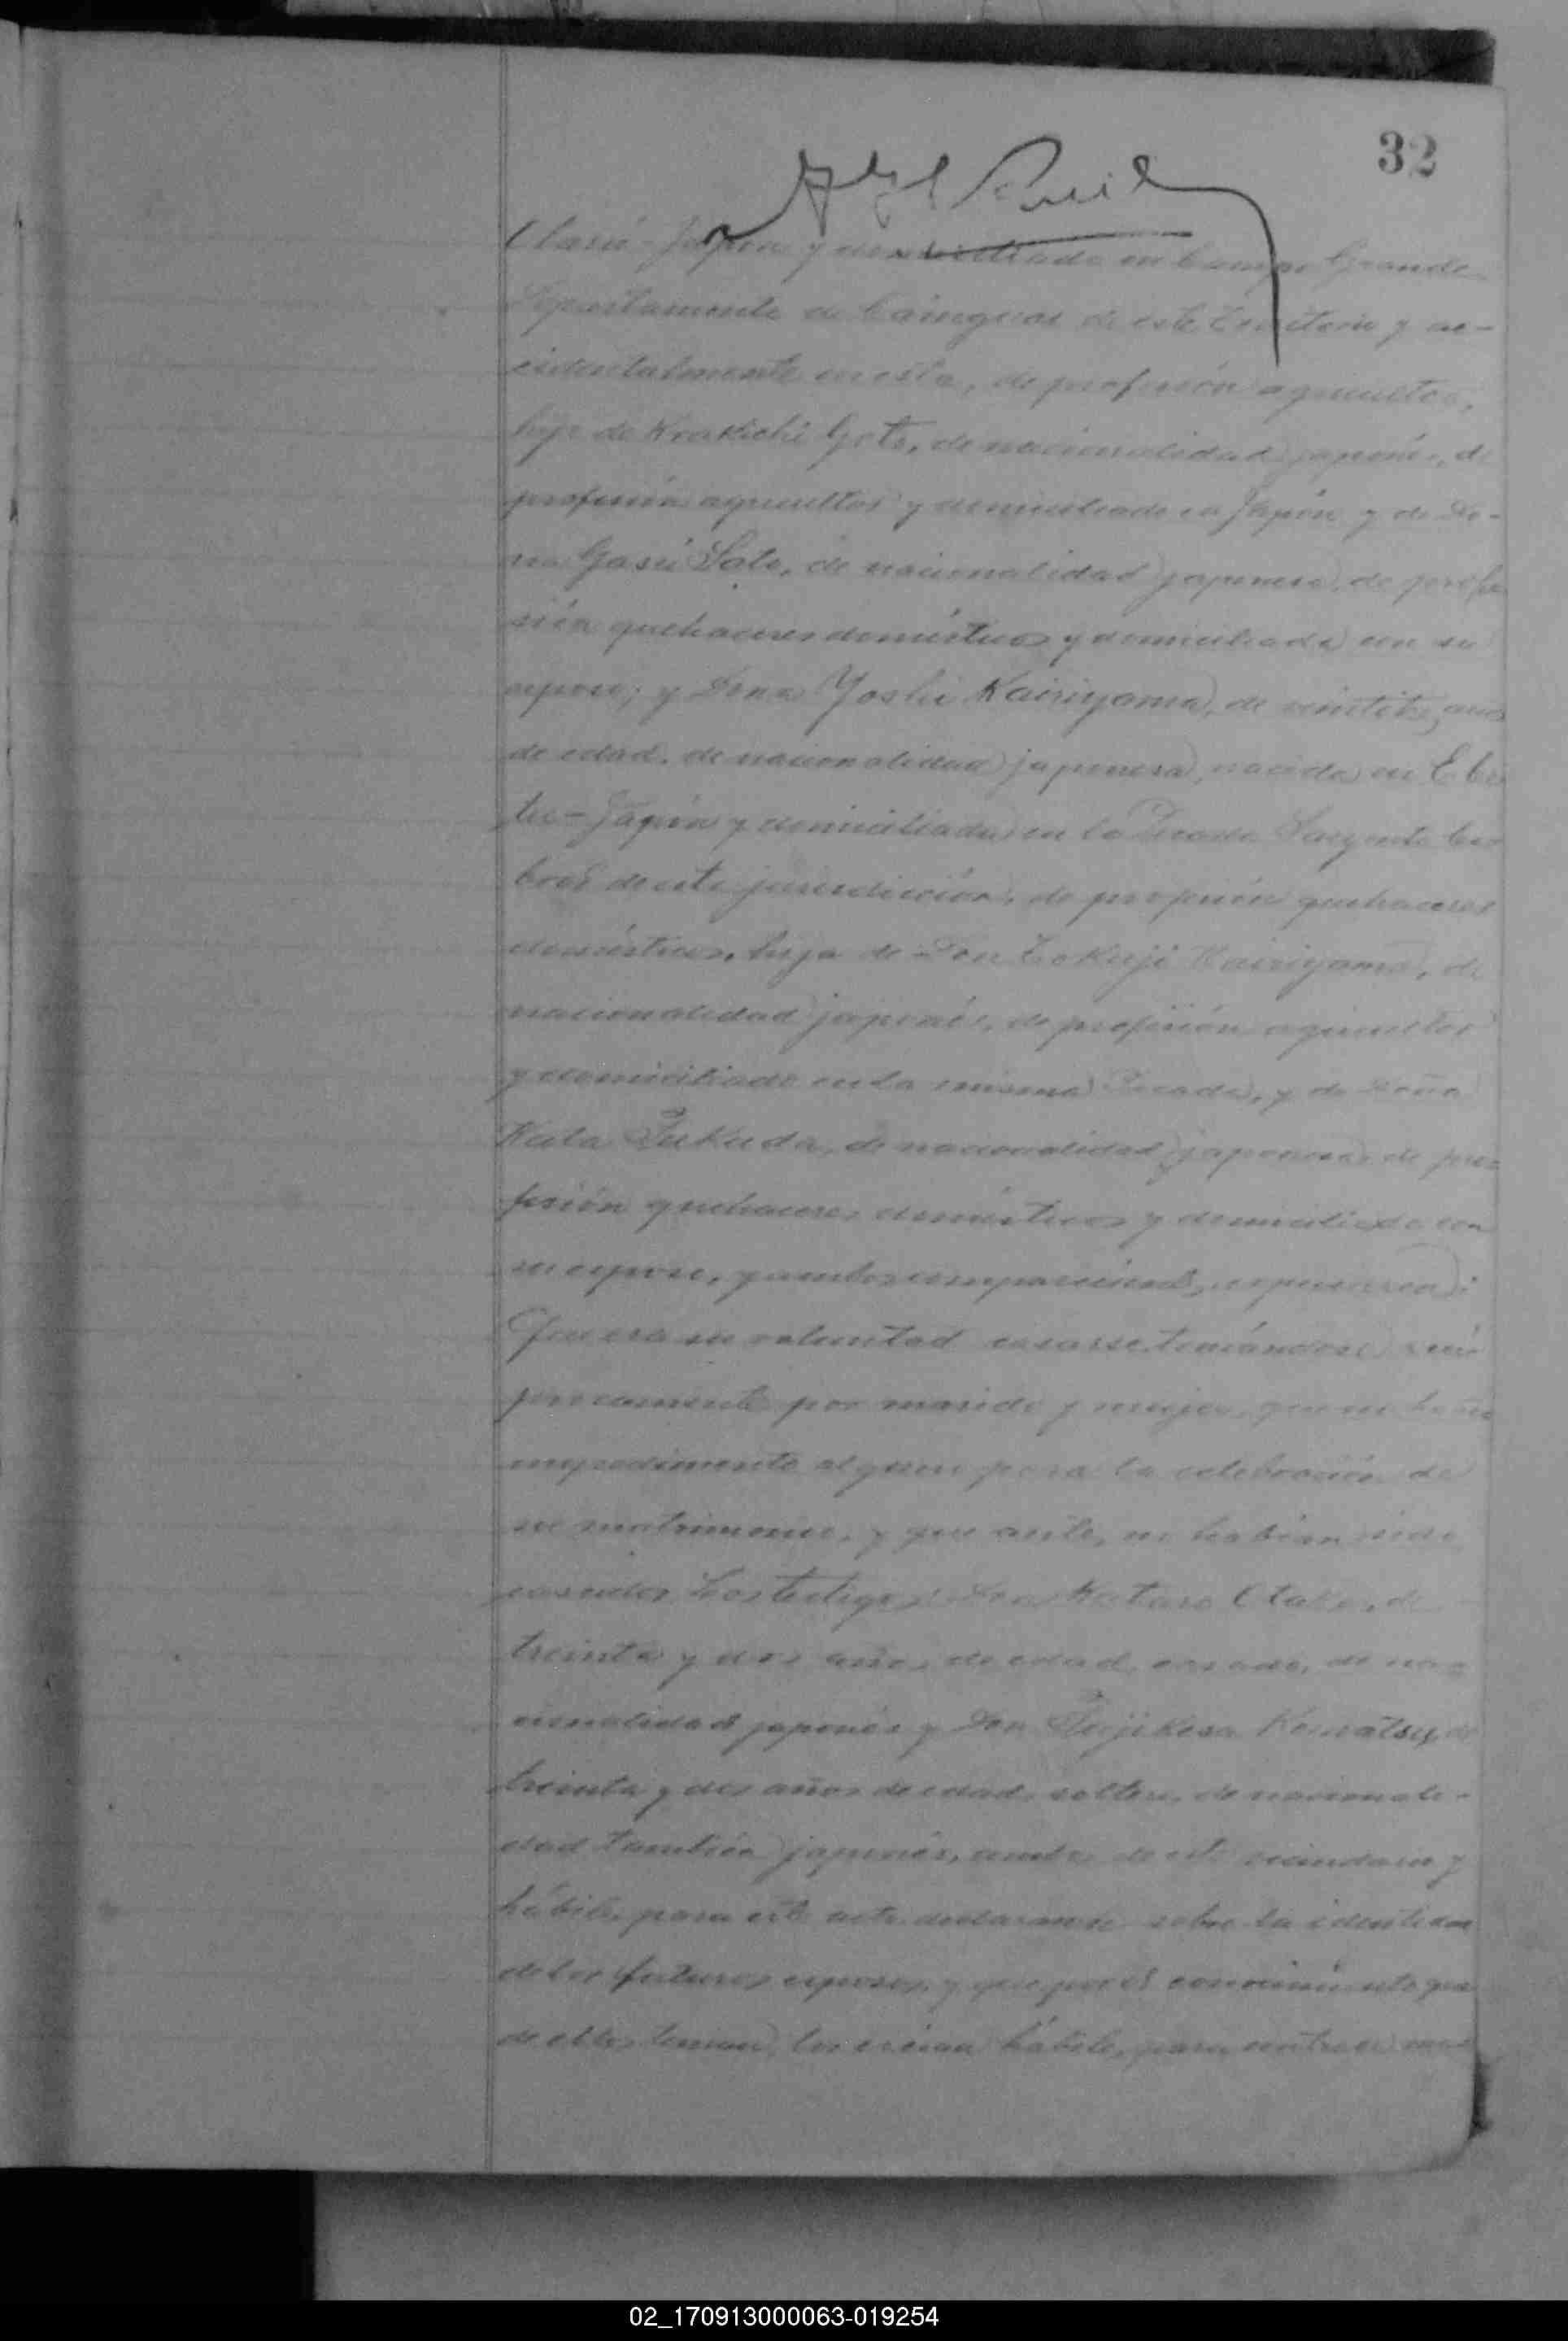 32
Japón y domiciliado en Campo Grande
Departamento de Cainguas de este Territorio y ac-
cidentalmente en esta, de profesión agricultor,
hijo de Krakichi Goto, de nacionalidad japonés, de
profesión agricultor y domiciliado en Japón y de Do-
ña Gasú Sato, de nacionalidad japonesa, de profe
sión quehaceres domésticos y domiciliada con su
esposo; y Doña Yoshi Kairiyama, de años
de edad, de nacionalidad japonesa, nacida en
Japón y domiciliada en la Picada Sargento Ca
bral de esta jurisdicción, de profesión quehaceres
domésticos, hija de Don Tokuji Kairiyama, de
nacionalidad japonés, de profesión agricultor
y domiciliado en la misma Picada, y de Doña
Kata Fukuda, de nacionalidad japonesa, de pro-
fesión quehaceres domésticos y domiciliada con
su esposo, y ambos comparecientes, expresaron:
Que era su voluntad casarse tomándose recí
procamente por marido y mujer, que no había
impedimento alguno para la celebración de
su matrimonio, y que antes no habían sido
casados. Los testigos: Don Kataro Otake, de
treinta y dos años de edad, casado, de na-
cionalidad japonés y Don Fujikesa Komatsu, de
treinta y dos años de edad, soltero, de nacionali-
dad también japonés, ambos de este vecindario y
hábiles para este acto declararon sobre la identidad
de los futuros esposos, y que por el conocimiento que
de ellos tenían, los creían hábiles para contraer ma
02_170913000063-019254